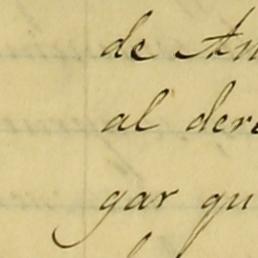 de An
al dere
gar qu